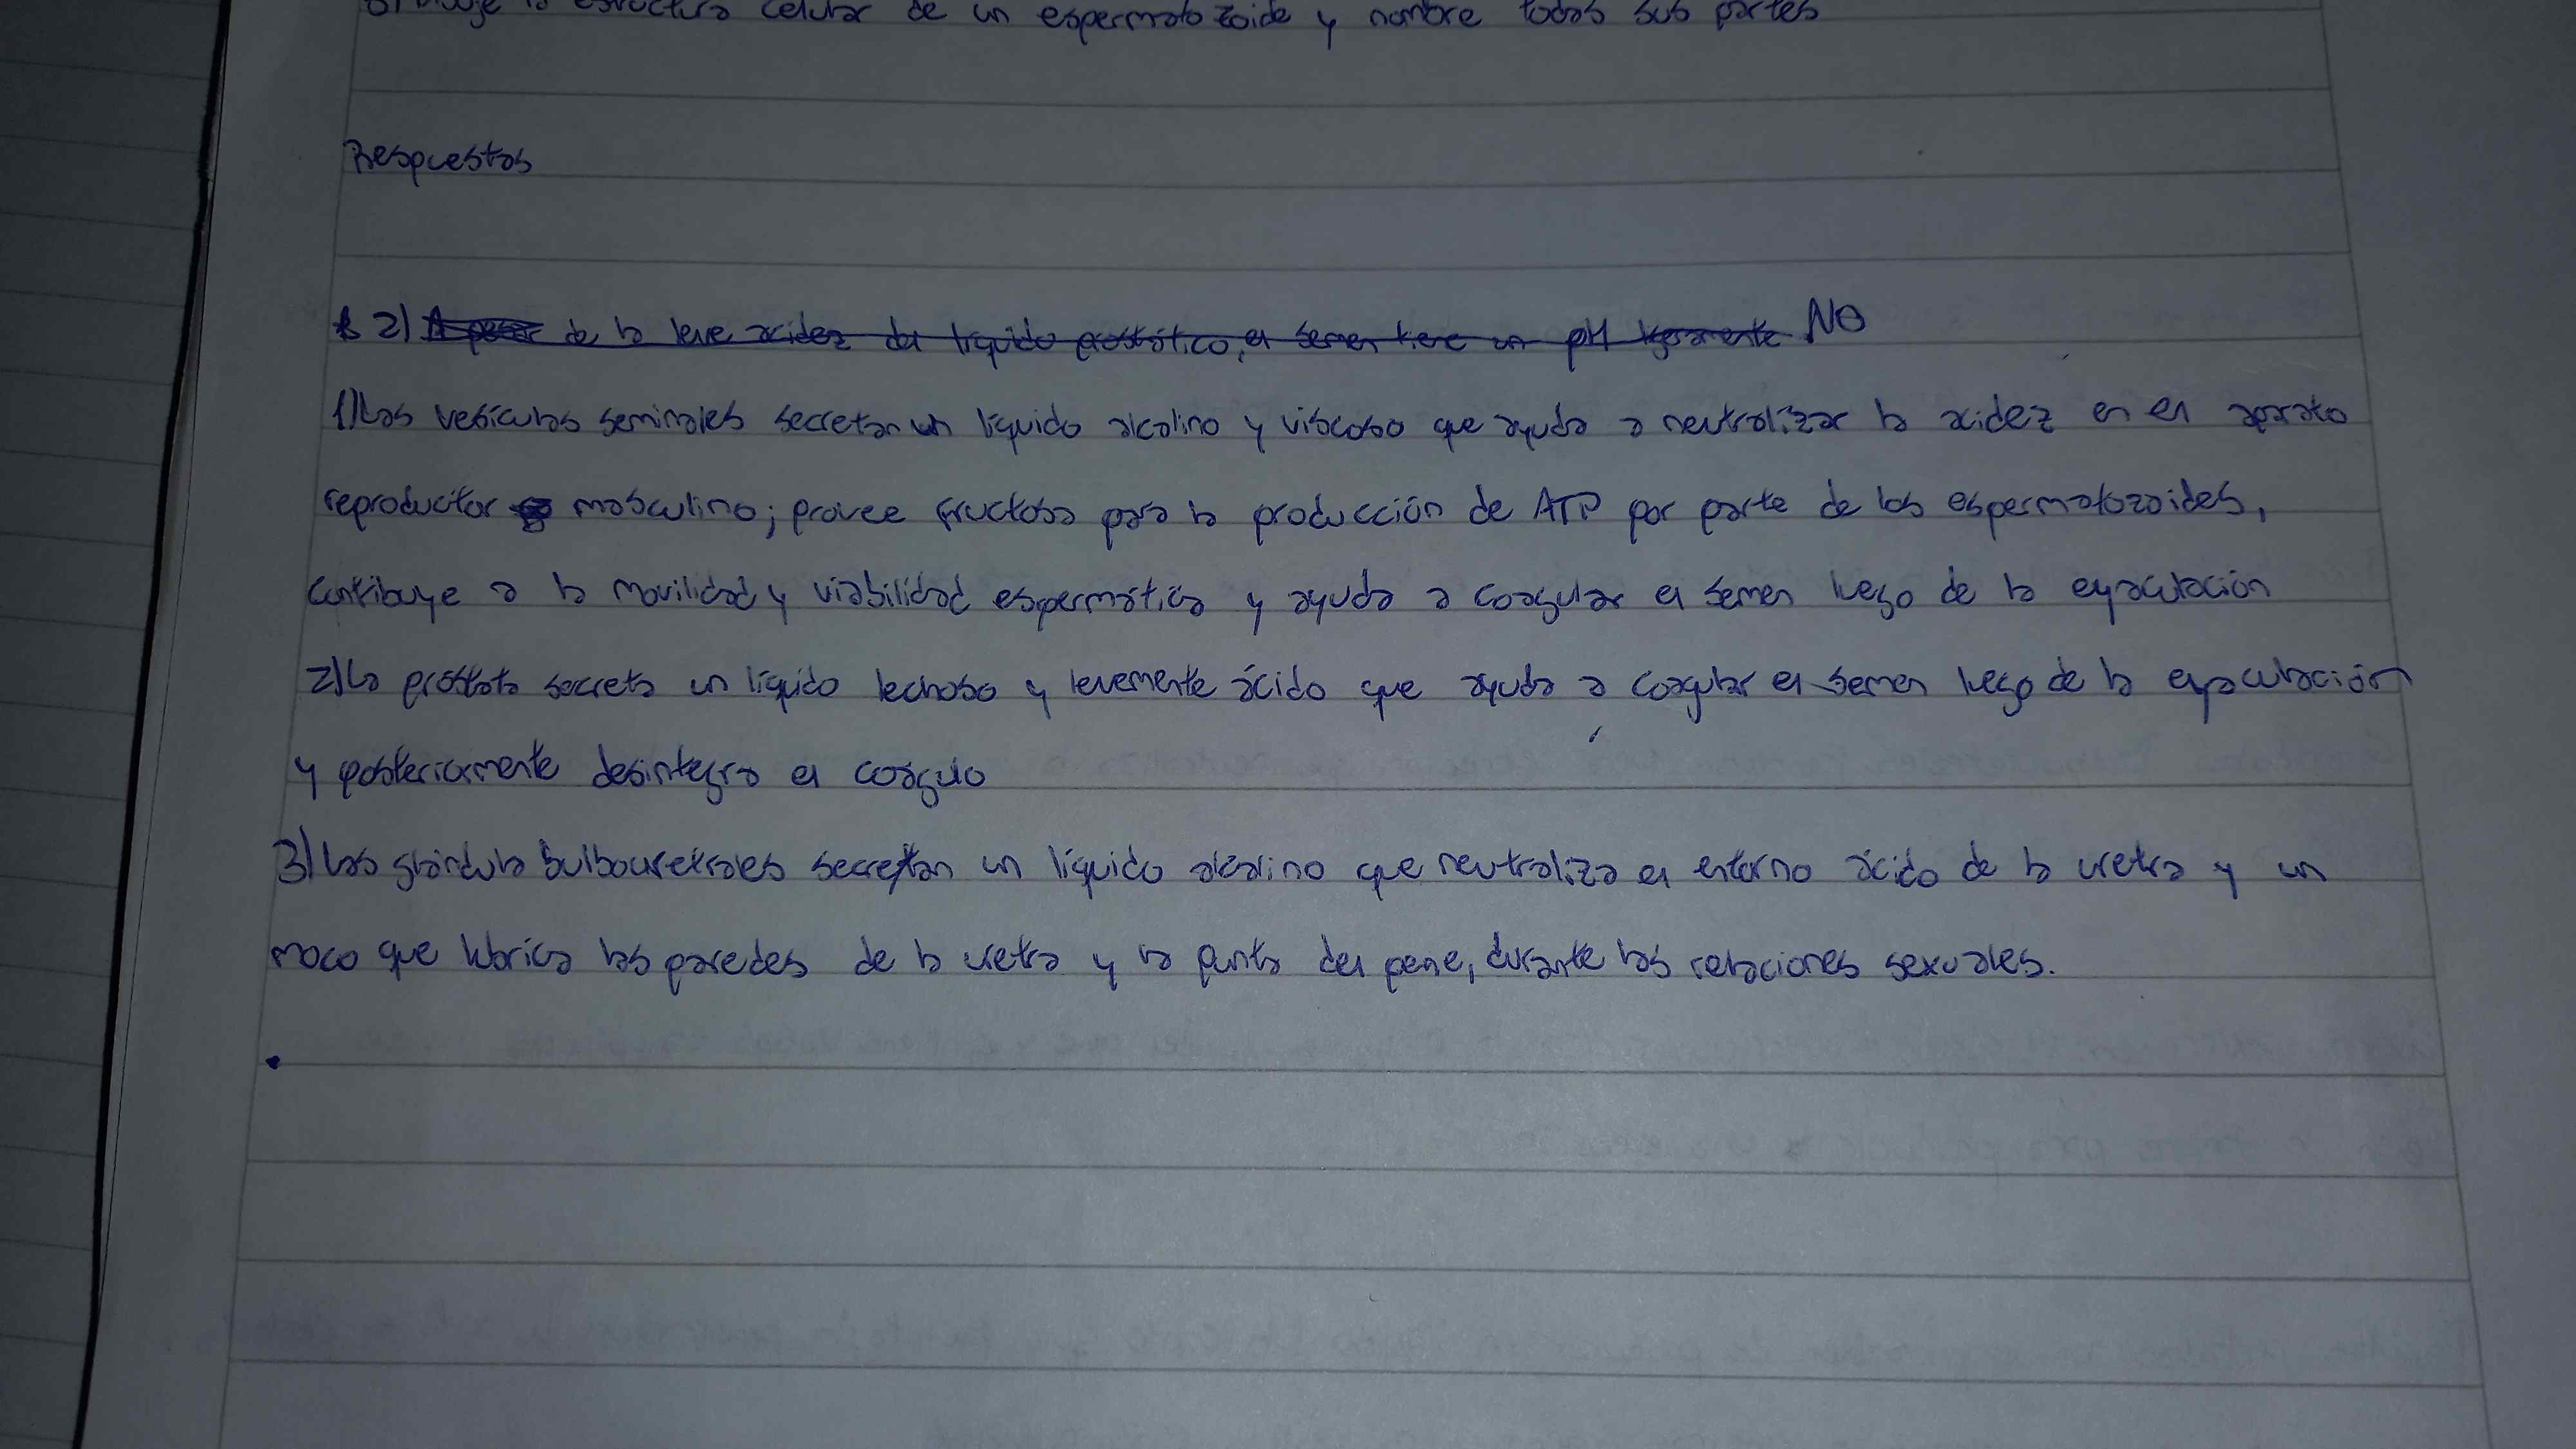 Dibuje la estructura celular de un espermatozoide y nombre todas sus partes
Respuestas
2) A pesar de la leve acidez del líquido prostático, el semen tiene un pH ligeramente NO
1) Las vesículas seminales secretan un líquido alcalino y viscoso que ayuda a neutralizar la acidez en el aparato
reproductor masculino; provee fructosa para la producción de ATP por parte de los espermatozoides,
contribuye a la movilidad y viabilidad espermática y ayuda a coagular el semen luego de la eyaculación
2) La próstata secreta un líquido lechoso y levemente ácido que ayuda a coagular el semen luego de la eyaculación
y posteriormente desintegra el coágulo
3) Las glándula bulbouretrales secretan un líquido alcalino que neutraliza el entorno ácido de la uretra y un
moco que lubrica las paredes de la uretra y la punta del pene, durante las relaciones sexuales.